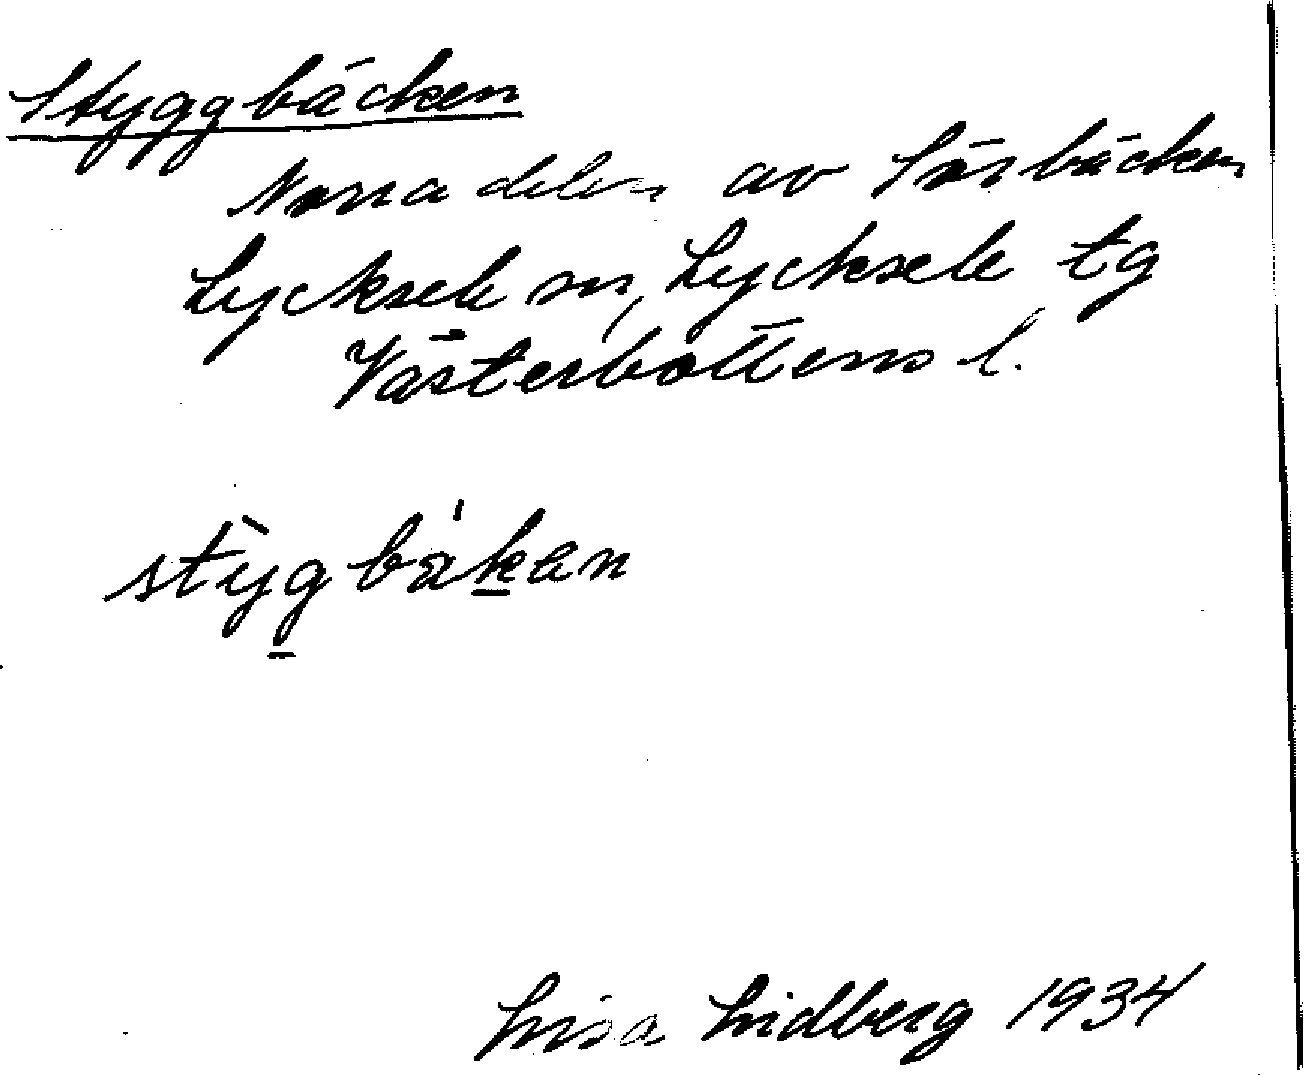 Styggbäcken
Norra delen av Sörbäcken
Lycksele sn, Lycksele tg
Västerbottens l.
stygbäkan
Lisa Lidberg 1934